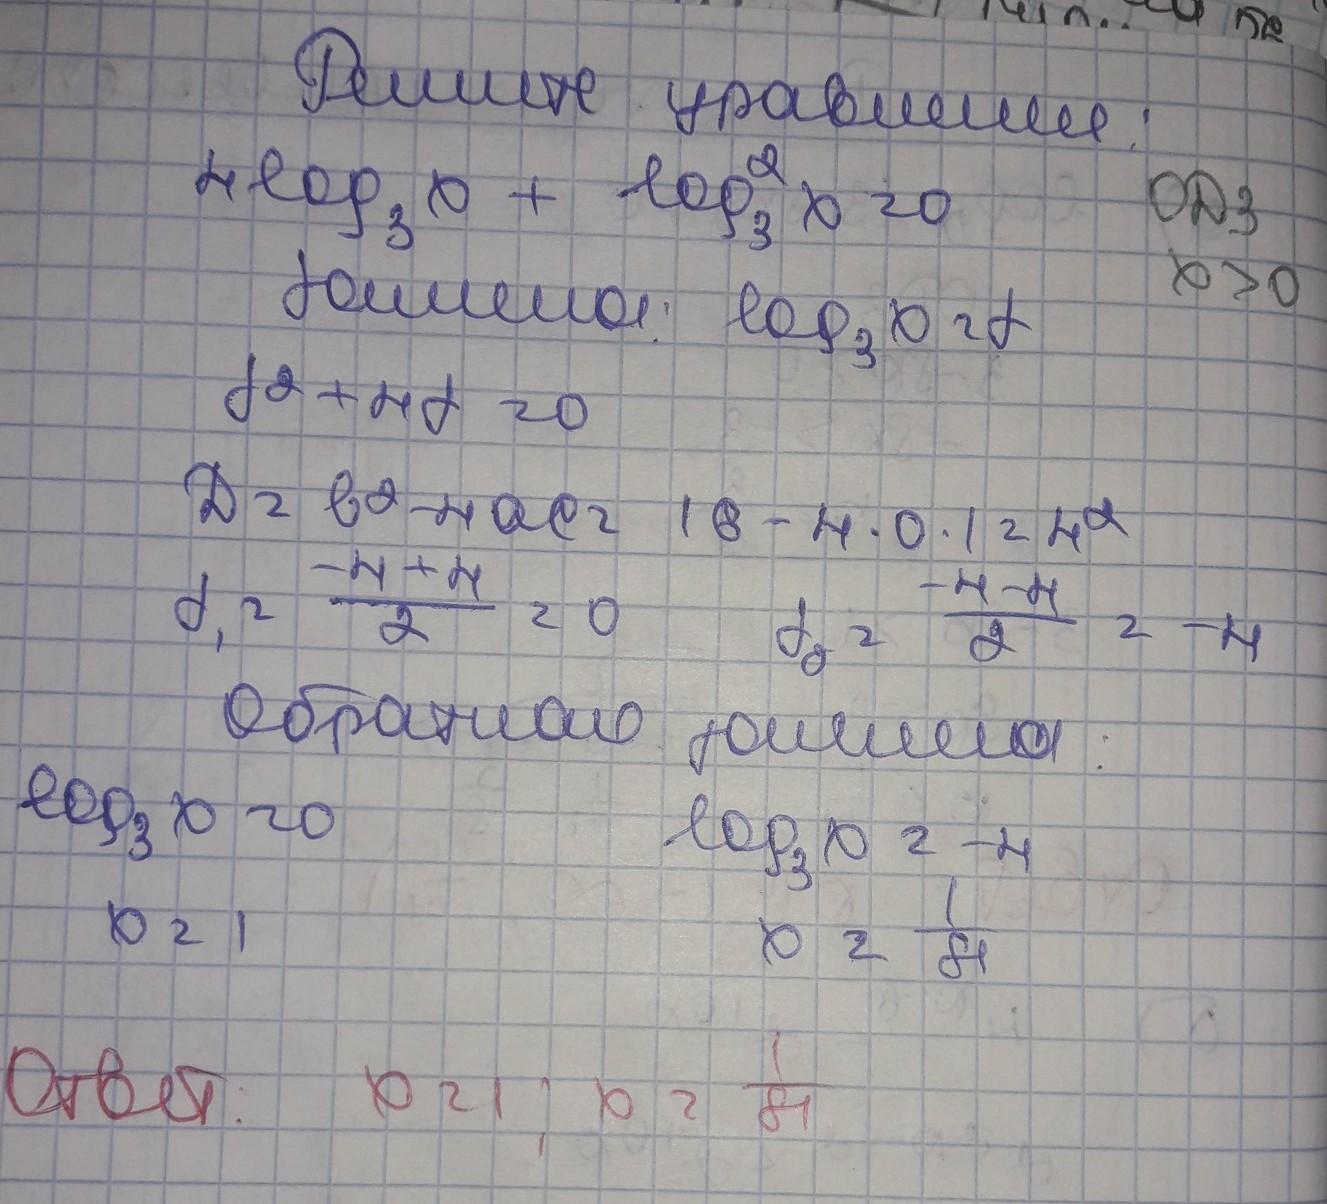 Решите уравнение:
4log₃x + log₃²x = 0 ОДЗ
x > 0
Замена: log₃x = t
t² + 4t = 0
D = b² - 4ac = 16 - 4·0·1 = 4²
t₁ = (-4+4)/2 = 0 t₂ = (-4-4)/2 = -4
Обратная замена:
log₃x = 0 log₃x = -4
x = 1 x = 1/81
Ответ: x = 1; x = 1/81